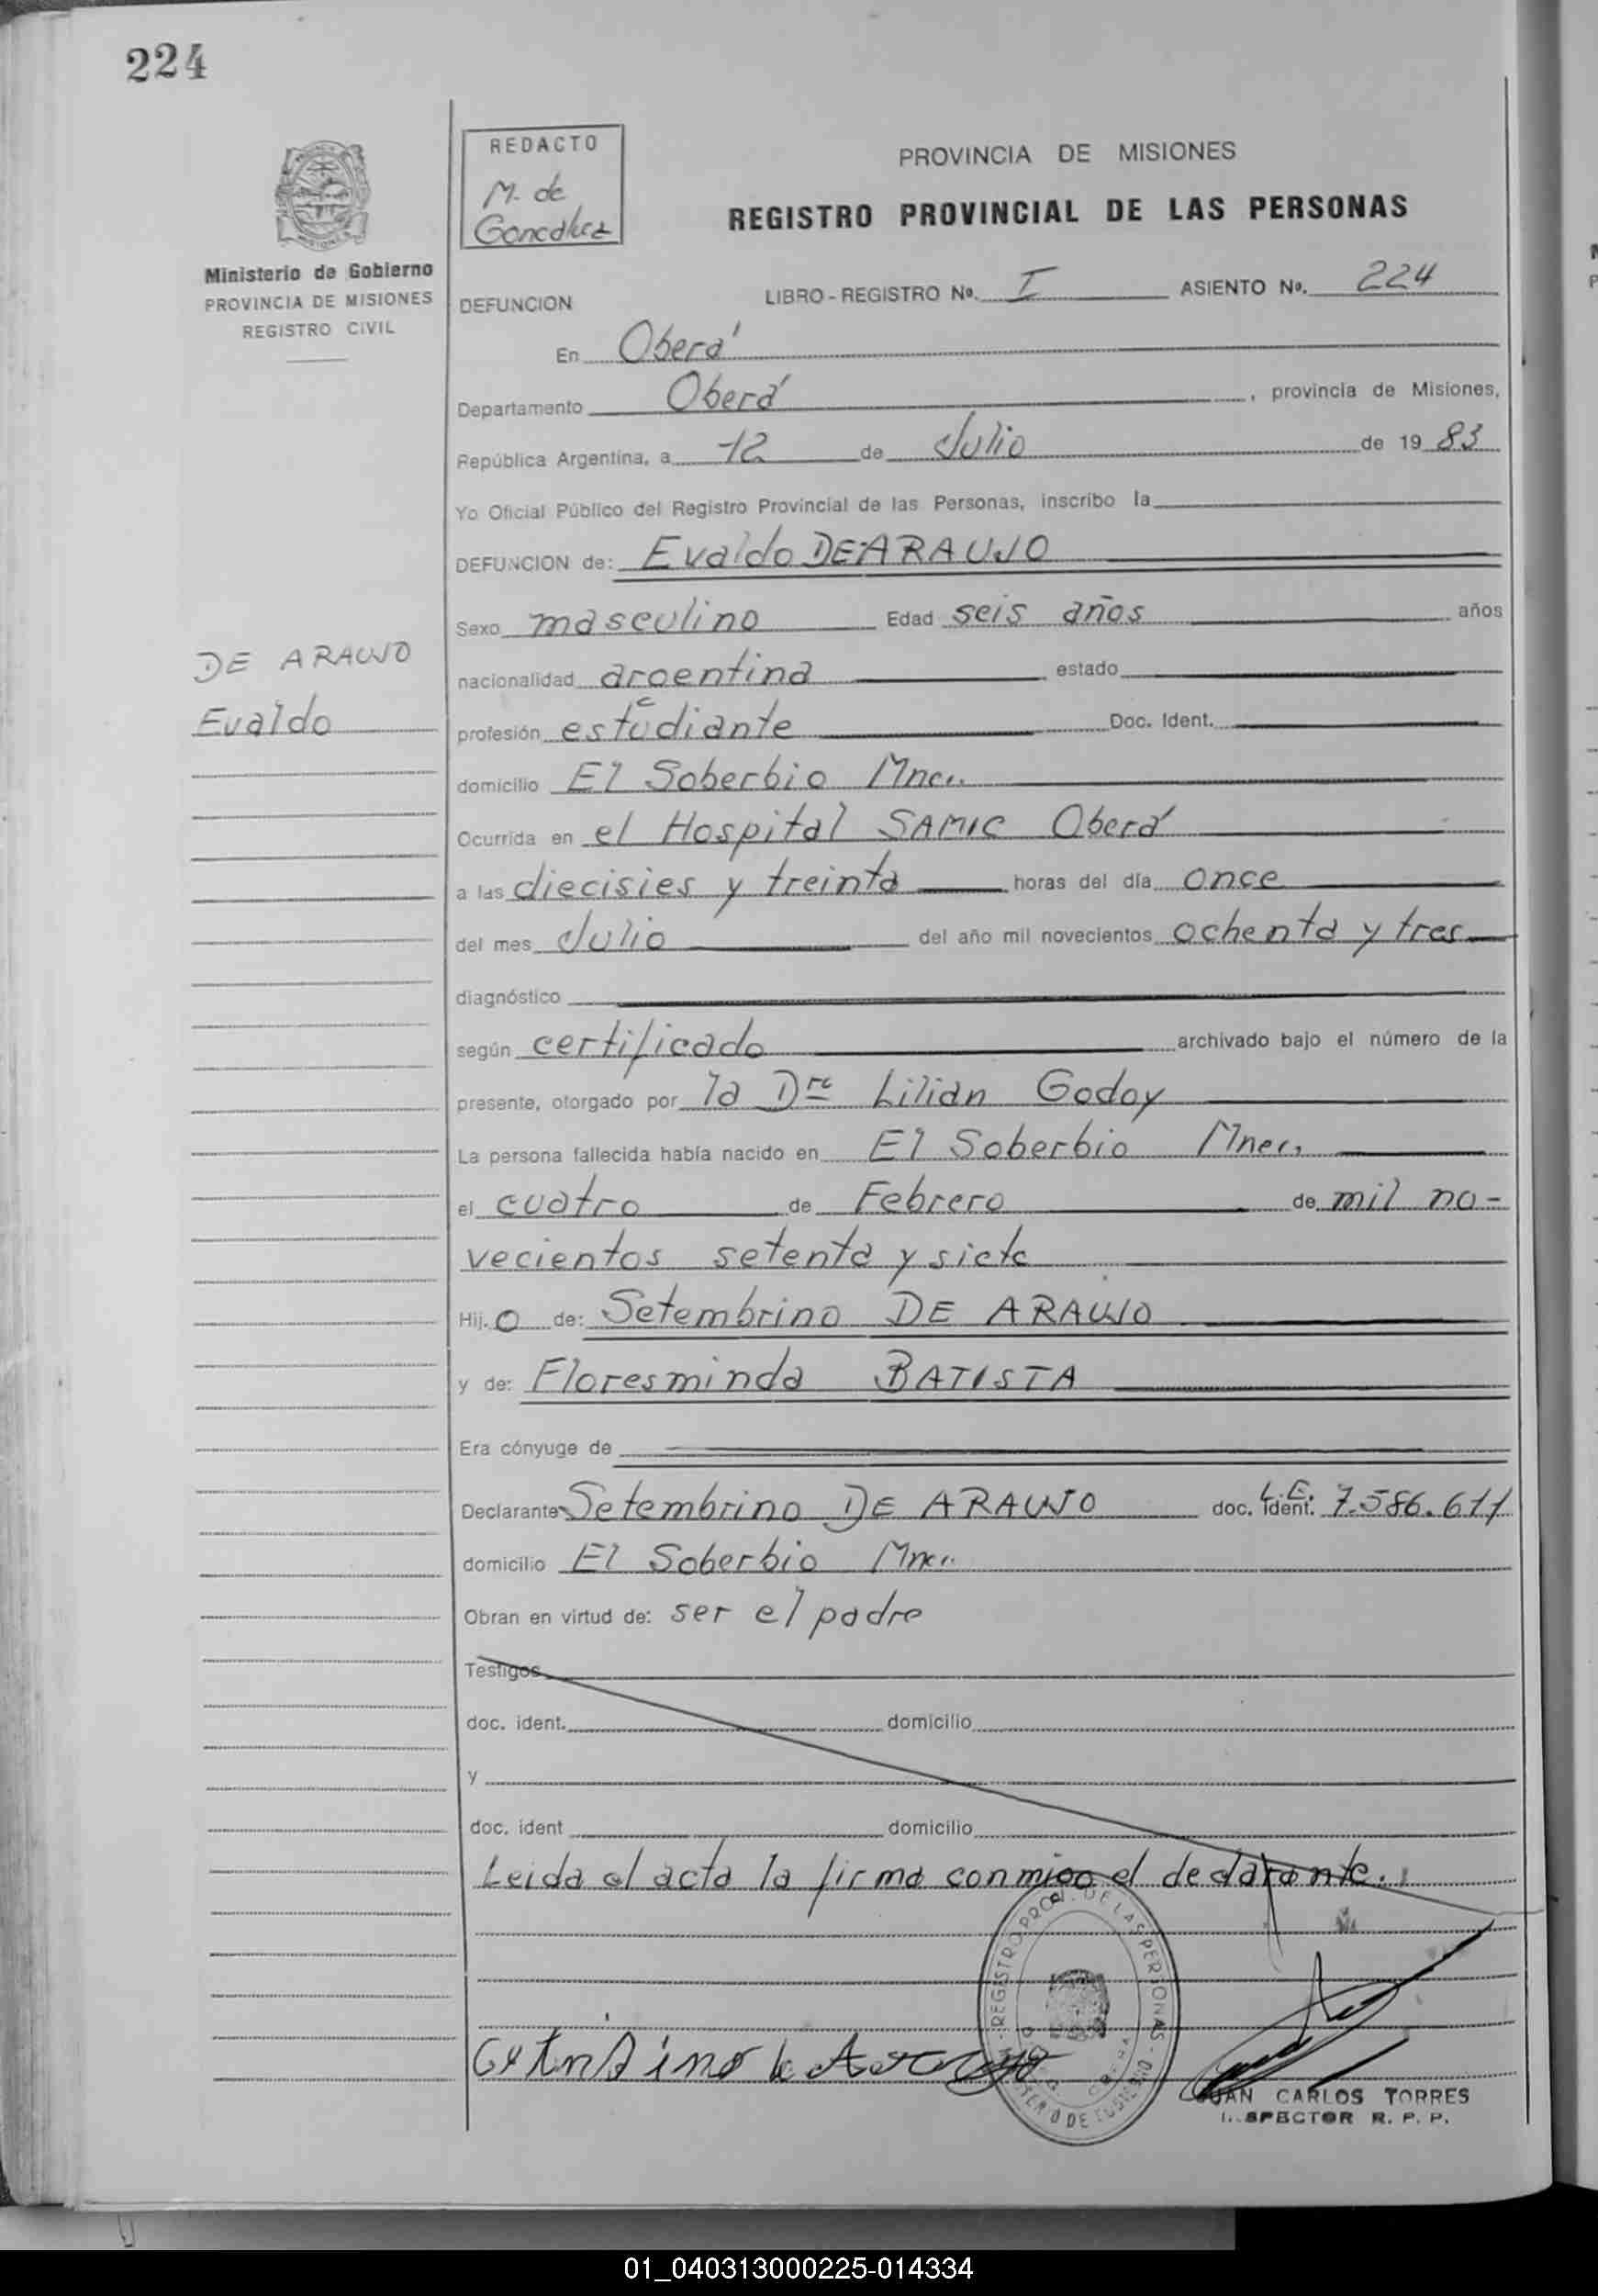 224
REDACTO
M. de
Ministerio de Gobierno
PROVINCIA DE MISIONES
REGISTRO CIVIL
PROVINCIA DE MISIONES
REGISTRO PROVINCIAL DE LAS PERSONAS
DEFUNCION LIBRO - REGISTRO Nº. I ASIENTO Nº. 224
En Oberá
Departamento Oberá , provincia de Misiones,
República Argentina, a 12 de Julio de 19 83
Yo Oficial Público del Registro Provincial de las Personas, inscribo la
DEFUNCION de: Evaldo DE ARAUJO
Sexo masculino Edad seis años años
DE ARAUJO
Evaldo
nacionalidad argentina estado
profesión estudiante Doc. Ident.
domicilio El Soberbio Mnes.
Ocurrida en el Hospital SAMIC Oberá
a las diecisies y treinta horas del día once
del mes Julio del año mil novecientos ochenta y tres
diagnóstico
según certificado archivado bajo el número de la
presente, otorgado por la Dra Lilian Godoy
La persona fallecida había nacido en El Soberbio Mnes.
el cuatro de Febrero de mil no-
vecientos setenta y siete
Hij. o de: Setembrino DE ARAUJO
y de: Floresminda BATISTA
Era cónyuge de
Declarante Setembrino DE ARAUJO doc. ident. L.E. 7.586.611
domicilio El Soberbio Mnes.
Obran en virtud de: ser el padre
Testigos
doc. ident. domicilio
y
doc. ident domicilio
Leida el acta la firma conmigo el declarante.
REGISTRO PROV. DE LAS PERSONAS
JUAN CARLOS TORRES
INSPECTOR R. P. P.
01_040313000225-014334